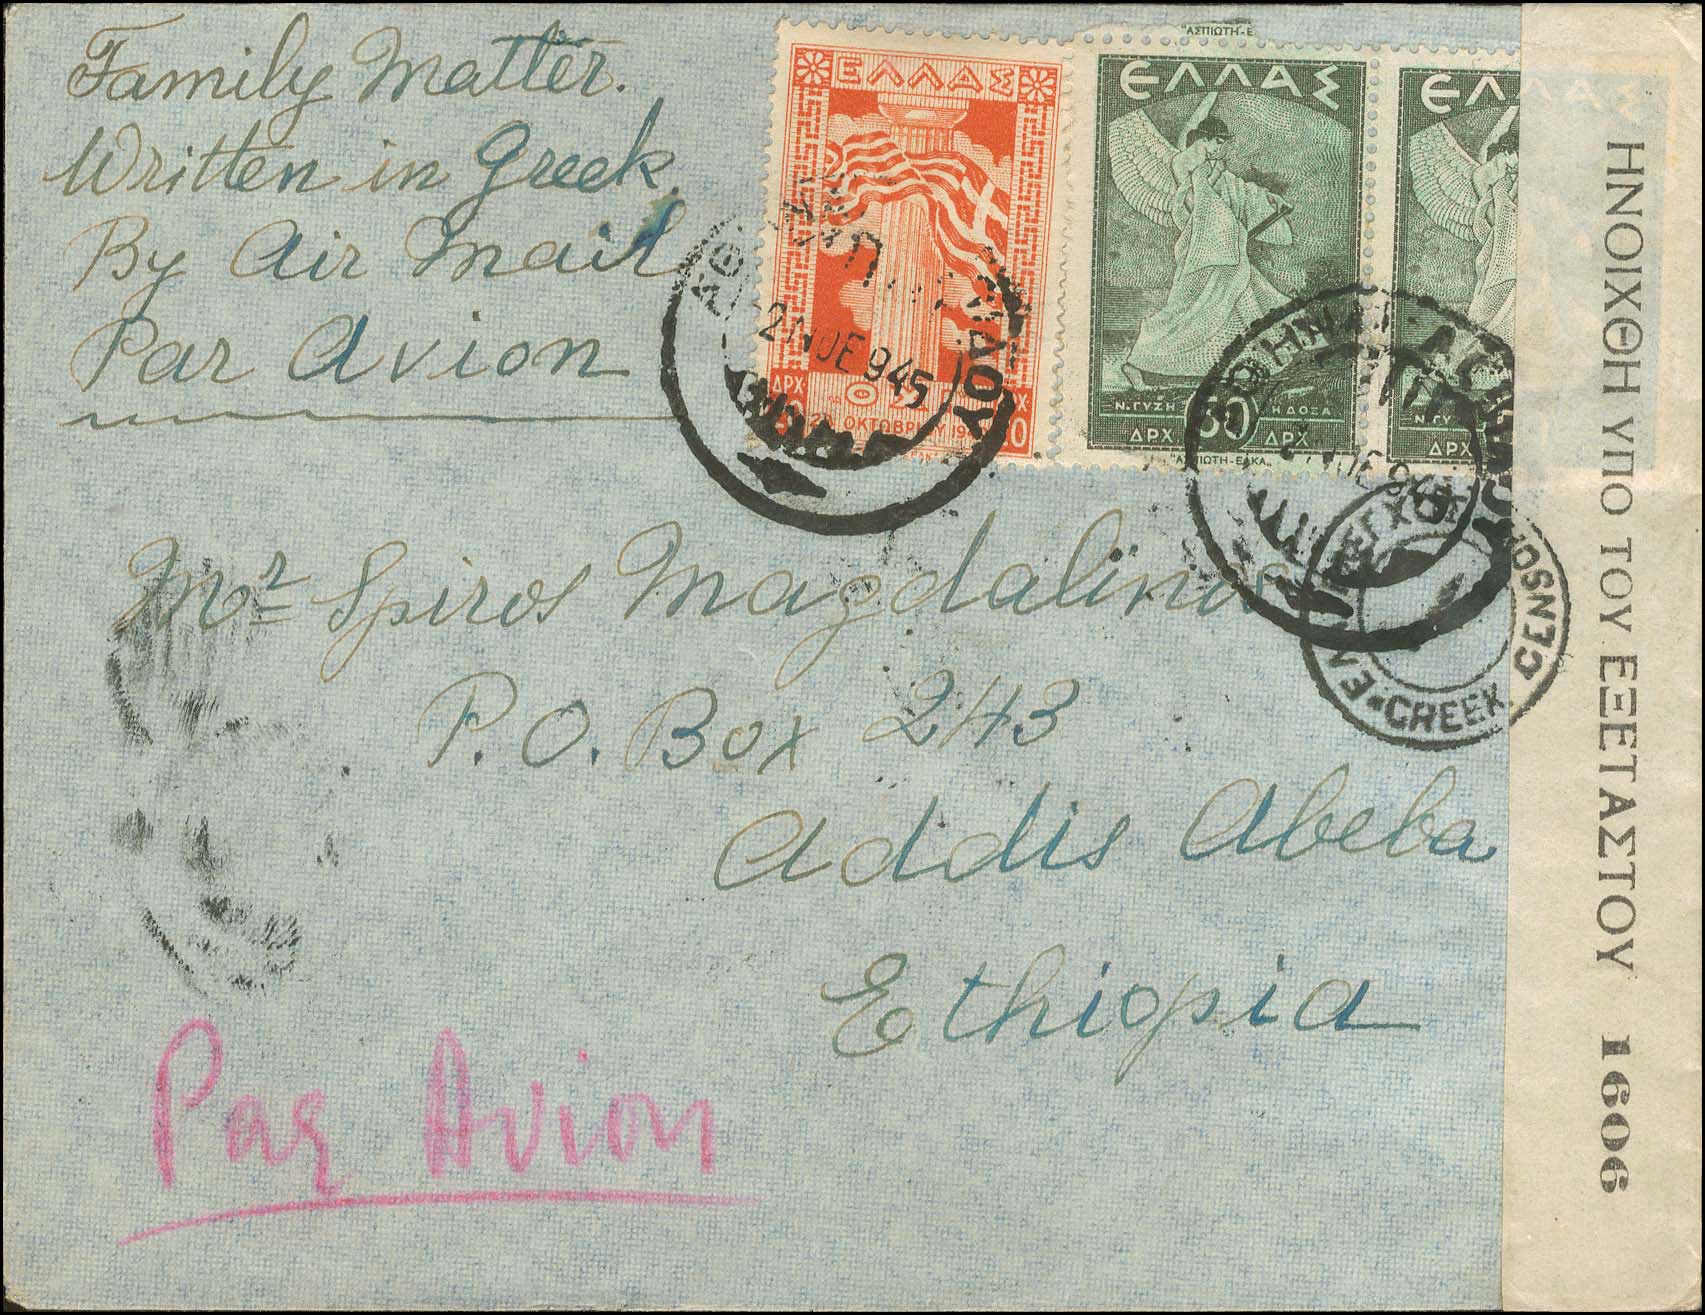 Family Matter.
Written in Greek
By Air Mail
Par Avion
"ΑΣΠΙΩΤΗ-Ε
ΕΛΛΑΣ
ΕΛΛΑΣ
ΕΛΛΑΣ
2 ΝΟΕ 945
ΔΡΧ
ΟΚΤΩΒΡΙΟΥ
Ν. ΓΥΖΗ Η ΔΟΞΑ
ΔΡΧ 60 ΔΡΧ
"ΑΣΠΙΩΤΗ-ΕΛΚΑ"
Ν. ΓΥ
ΔΡΧ
CENSOR
GREEK
Mr Spiros Magdalinos
P.O. Box 243
Addis Abeba
Ethiopia
Par Avion
ΗΝΟΙΧΘΗ ΥΠΟ ΤΟΥ ΕΞΕΤΑΣΤΟΥ 1606